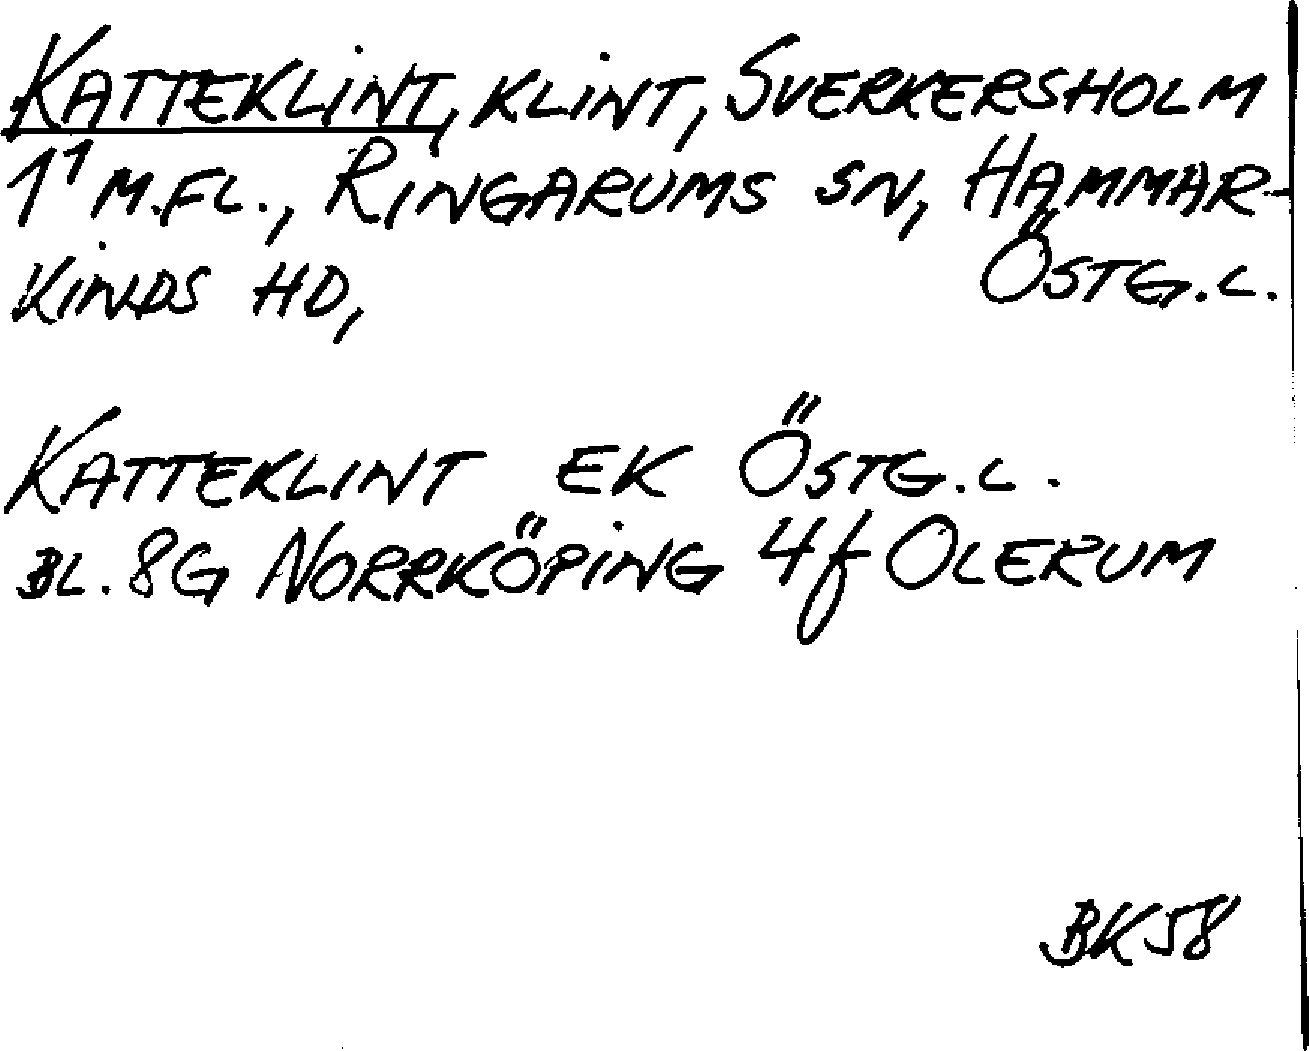 KATTEKLINT, KLINT, SVERKERSHOLM
1¹ M.FL., RINGARUMS SN, HAMMAR-
KINDS HD, ÖSTG.L.
KATTEKLINT EK ÖSTG.L.
BL. 8G NORRKÖPING 4f OLERUM
BK58